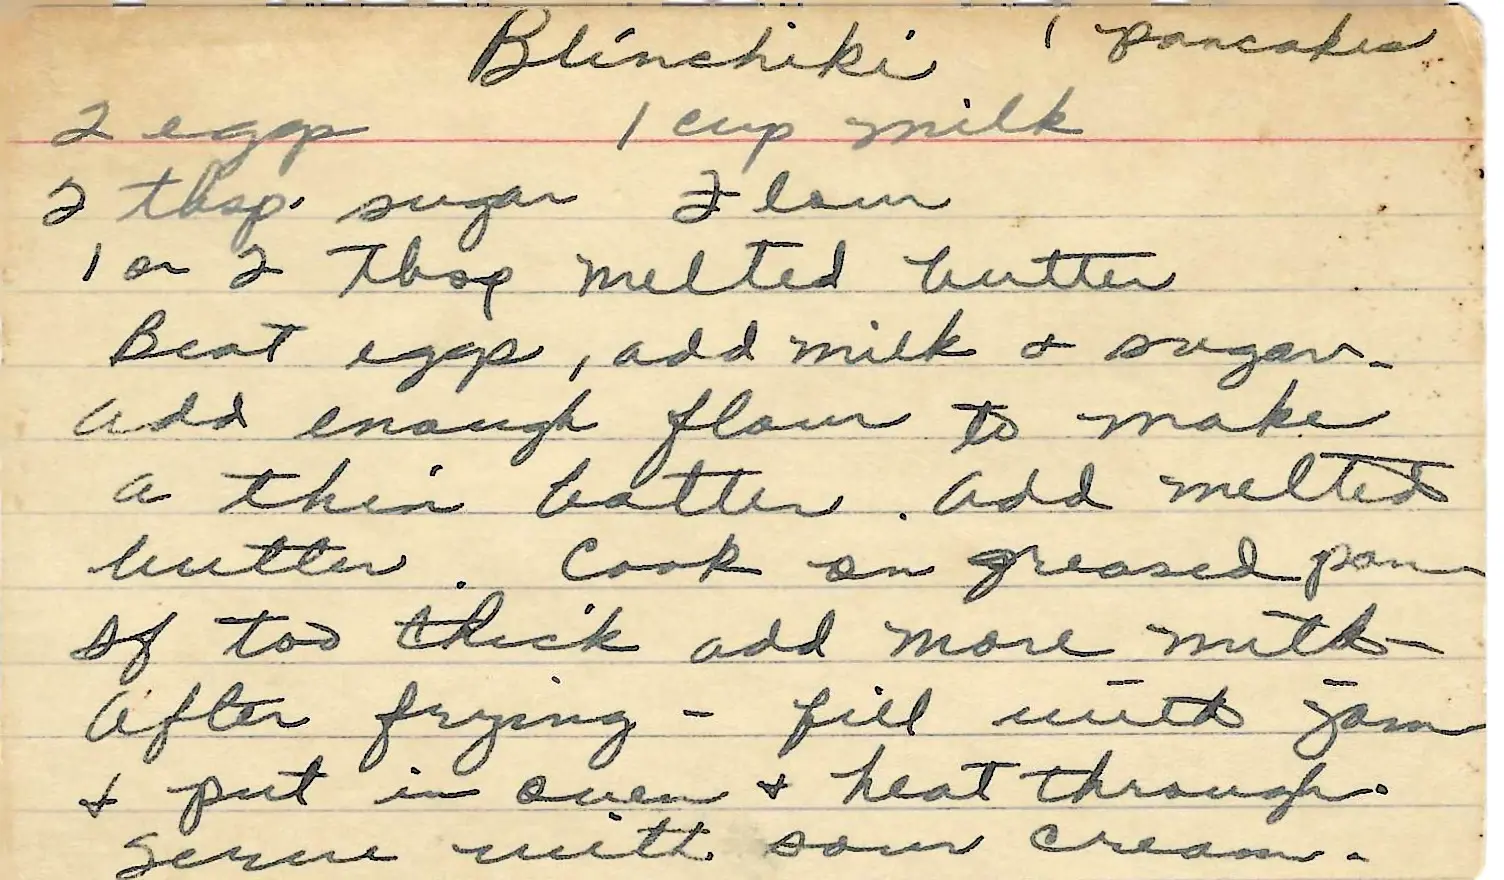 Blinchiki 1 pancakes
2 eggs 1 cup milk
2 tbsp. sugar Flour
1 or 2 Tbsp melted butter
Beat eggs, add milk & sugar.
Add enough flour to make
a thin batter. Add melted
butter. Cook on greased pan
If too thick add more milk
After frying - fill with jam
& put in oven & heat through.
Serve with sour cream.